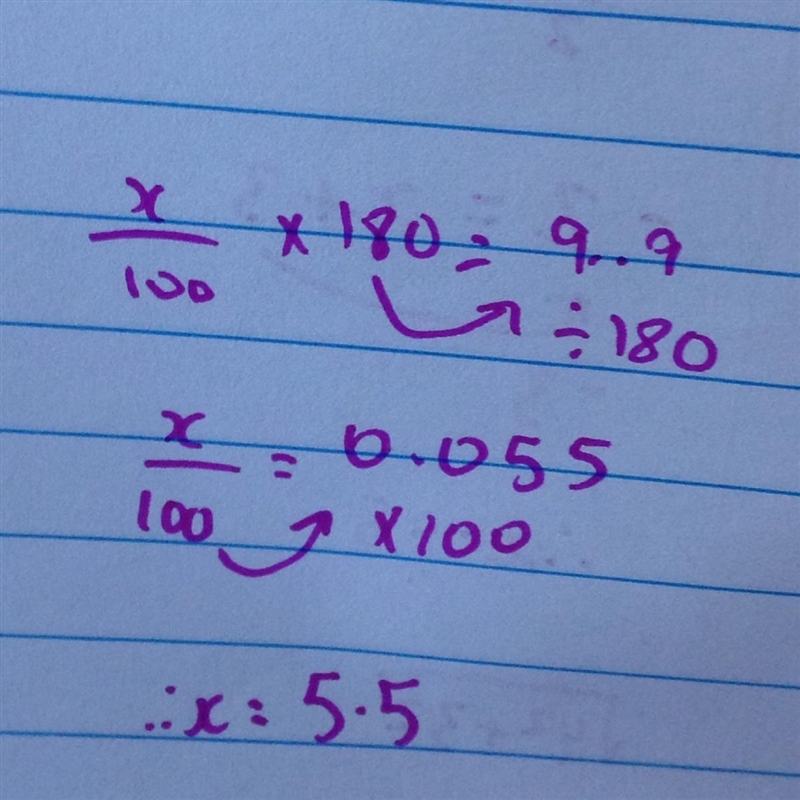 x/100 × 180 = 9..9
÷180
x/100 = 0.055
×100
∴x = 5.5